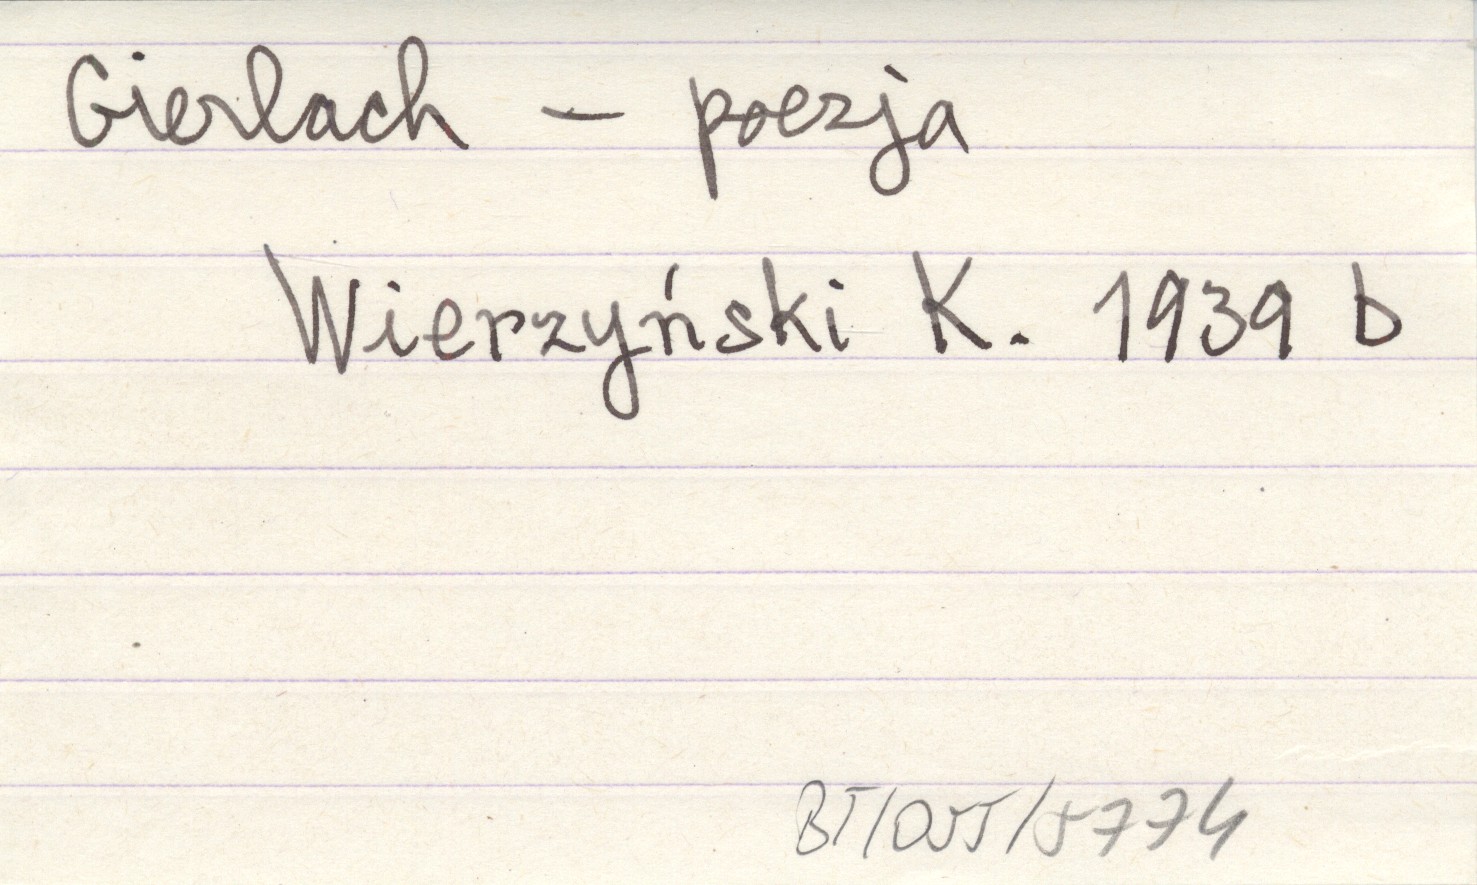 Gierlach - poezja
Wierzyński K. 1939 b
BT/OJT/5774